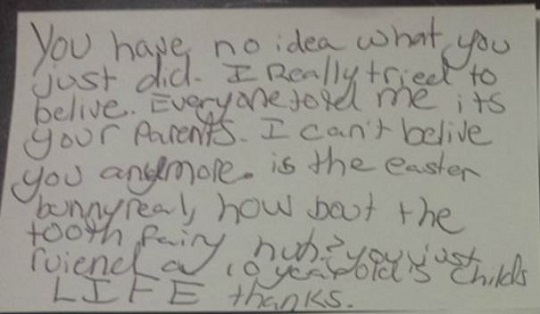 You have no idea what you
just did. I Really tried to
belive. Everyone told me its
your Parents. I can't belive
you anymore. is the easter
bunny real, how bout the
tooth fairy, huh? you just
ruiened a 10 year old's childs
LIFE thanks.